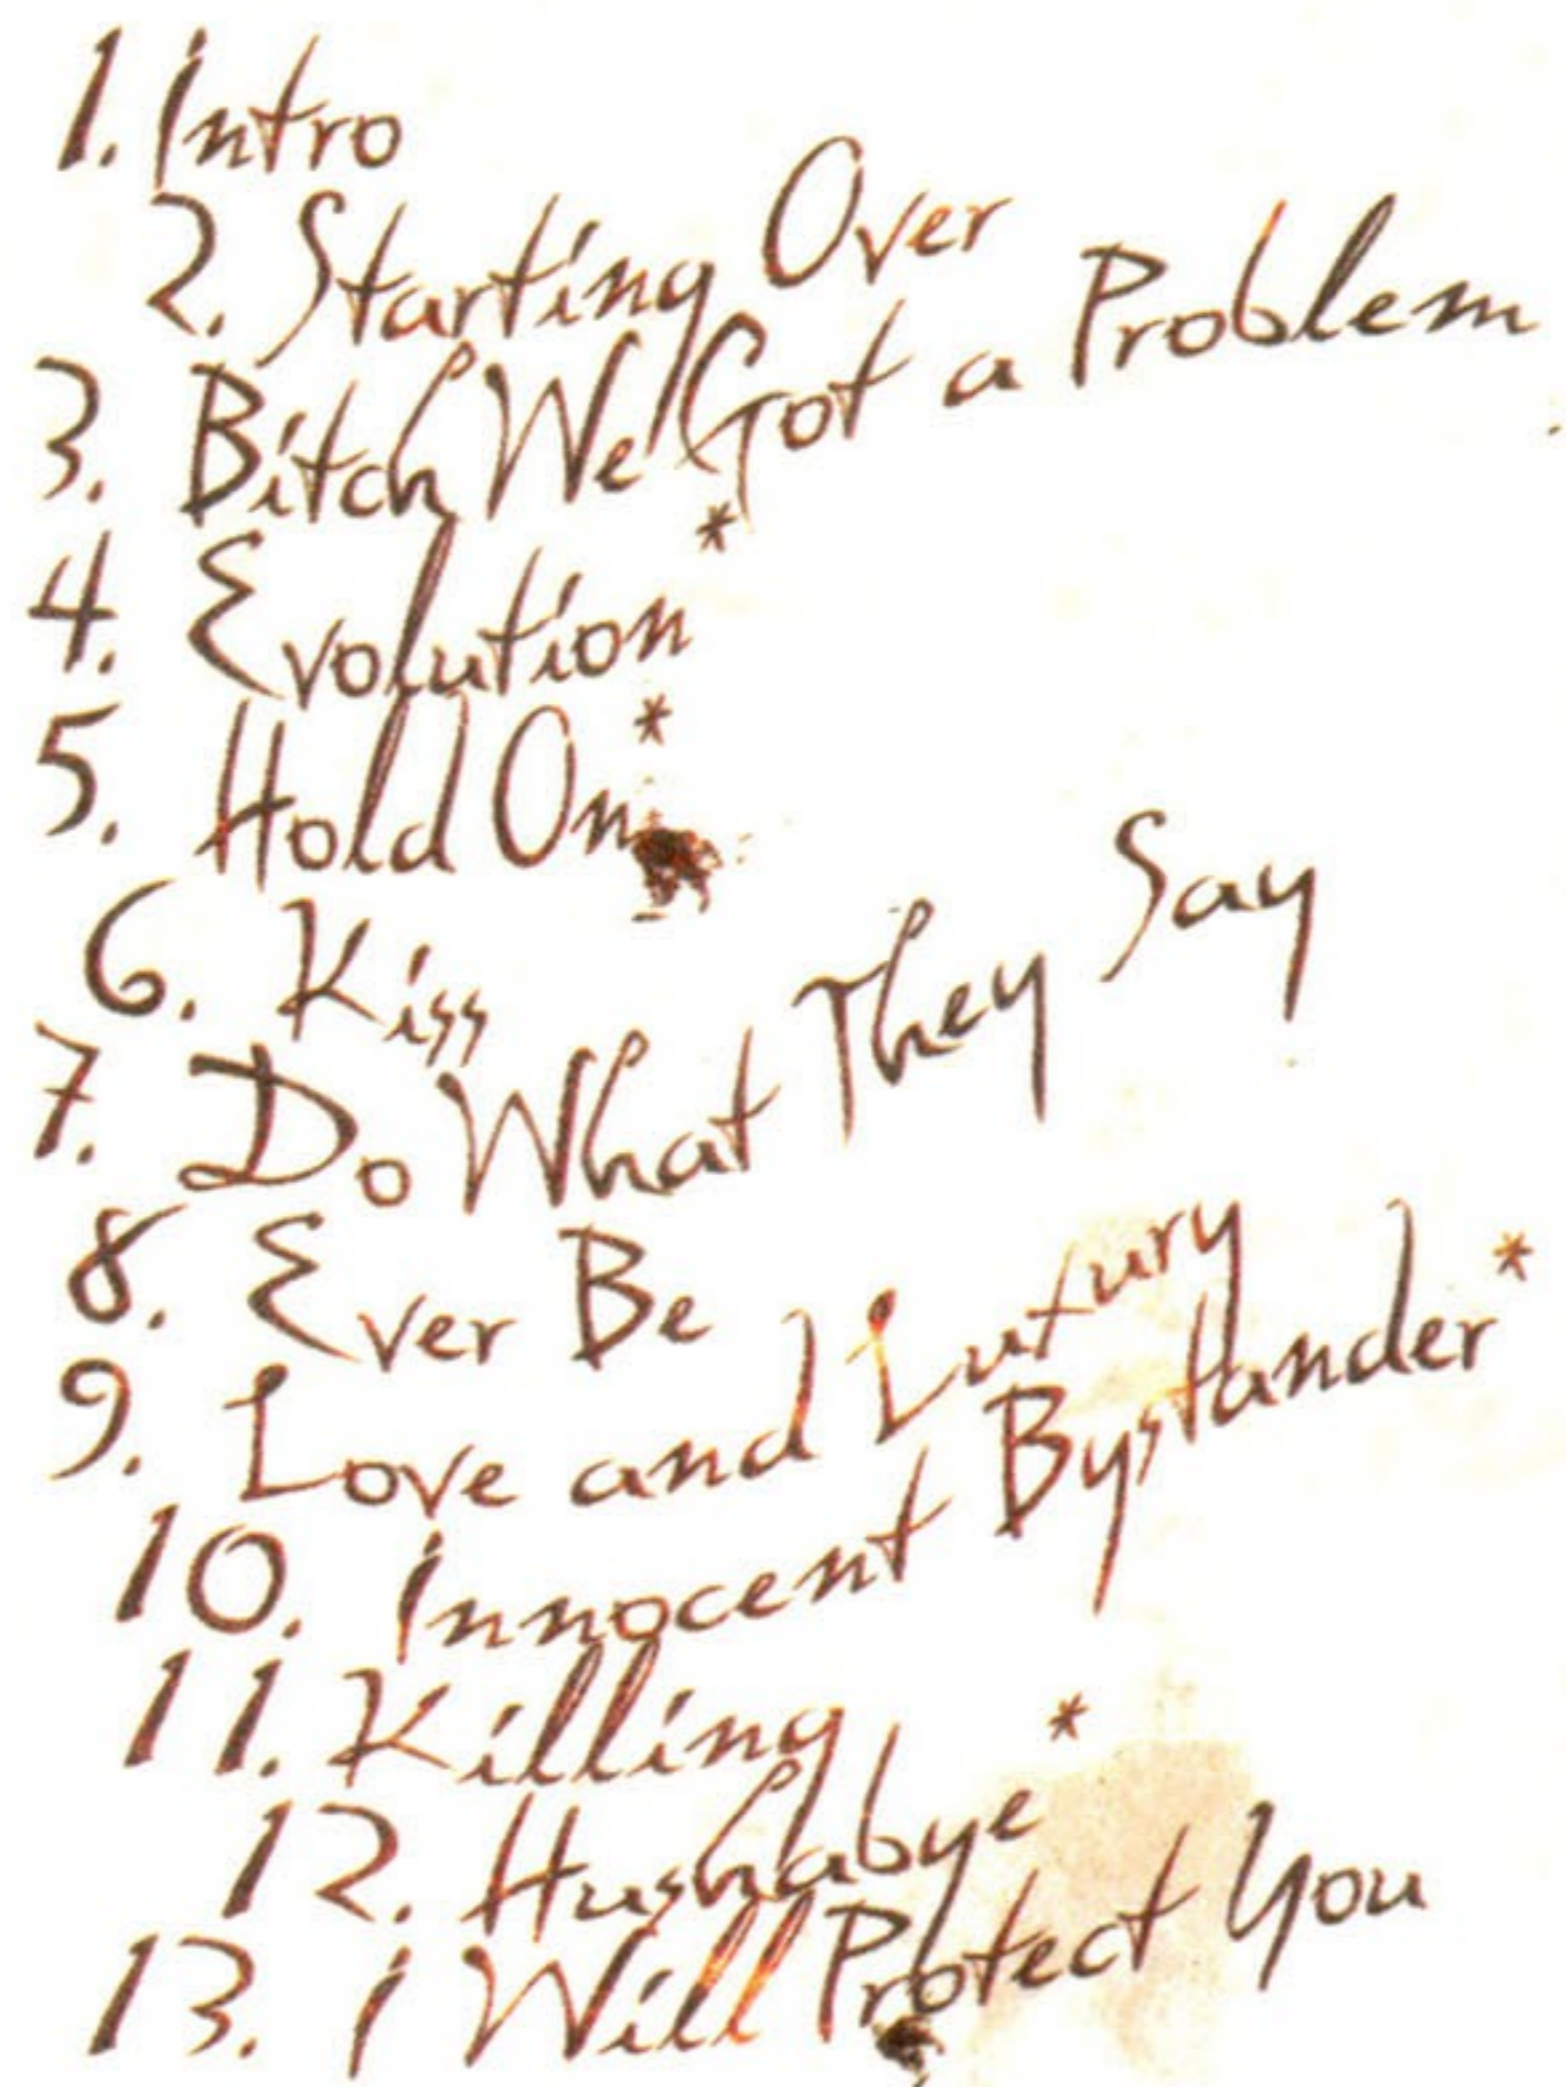 1. Intro
2. Starting Over
3. Bitch We Got a Problem
4. Evolution*
5. Hold On*
6. Kiss
7. Do What They Say
8. Ever Be
9. Love and Luxury
10. Innocent Bystander*
11. Killing
12. Hushabye*
13. I Will Protect You